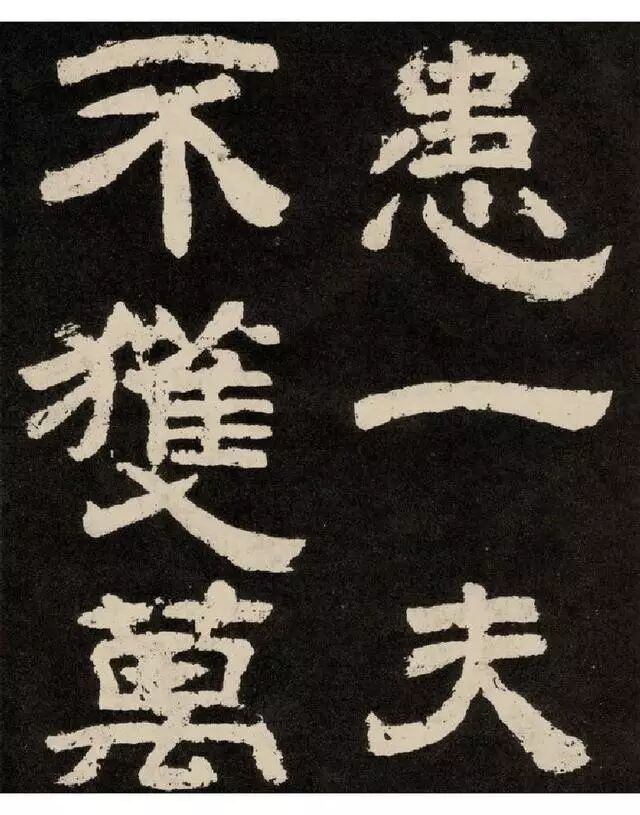 患一夫
不獲萬